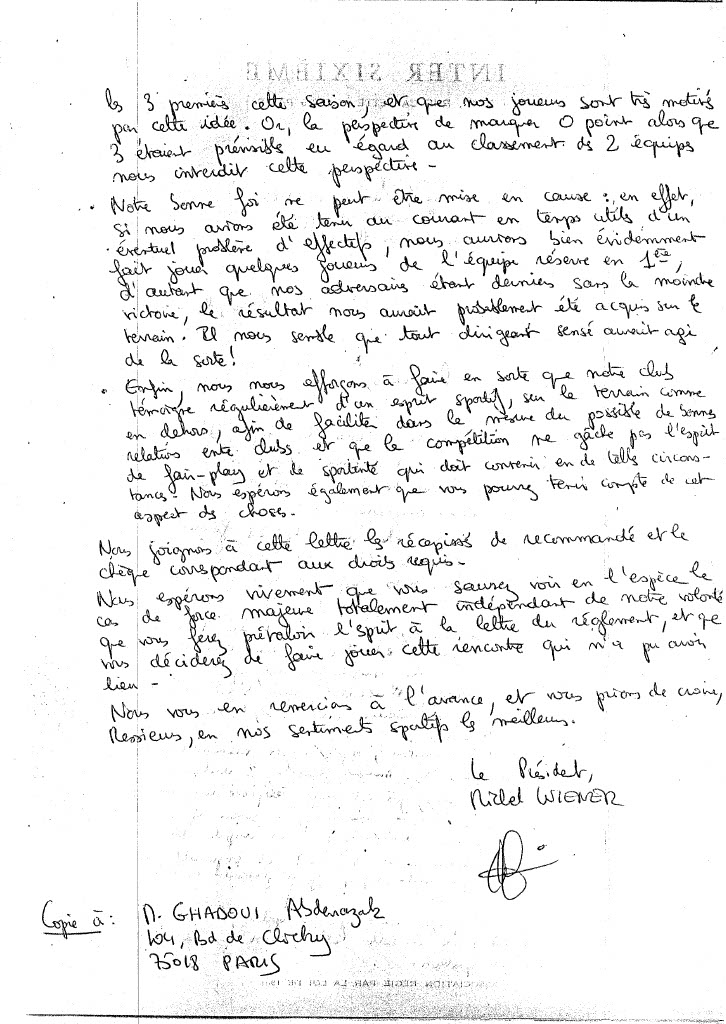 les 3 premiers cette saison, et que nos joueurs sont très motivés
par cette idée. Or, la perspective de marquer 0 point alors que
3 étaient prévisible eu égard au classement des 2 équipes
nous interdit cette perspective -
• Notre bonne foi ne peut être mise en cause : en effet,
si nous avions été tenu au courant en temps utiles d'un
éventuel problème d'effectifs, nous aurions bien évidemment
fait jouer quelques joueurs de l'équipe réserve en 1ère,
d'autant que nos adversaires étant derniers sans la moindre
victoire, le résultat nous aurait probablement été acquis sur le
terrain. Il nous semble que tout dirigeant sensé aurait agi
de la sorte!
• Enfin, nous nous efforçons à faire en sorte que notre club
témoigne régulièrement d'un esprit sportif, sur le terrain comme
en dehors, afin de faciliter dans la mesure du possible de bonnes
relations entre clubs et que la compétition ne gâche pas l'esprit
de fair-play et de sportivité qui doit convenir en de telles circons-
tances. Nous espérons également que vous pourrez tenir compte de cet
aspect des choses.
Nous joignons à cette lettre les récépissés de recommandé et le
chèque correspondant aux droits requis.
Nous espérons vivement que vous saurez voir en l'espèce le
cas de force majeure totalement indépendant de notre volonté
que vous ferez prévaloir l'esprit à la lettre du réglement, et que
vous déciderez de faire jouer cette rencontre qui n'a pu avoir
lieu -
Nous vous en remercions à l'avance, et vous prions de croire,
Messieurs, en nos sentiments sportifs les meilleurs.
Le Président,
Michel WIENER
Copie à : M. GHADOUI Abderrazak
104, Bd de Clichy
75018 PARIS